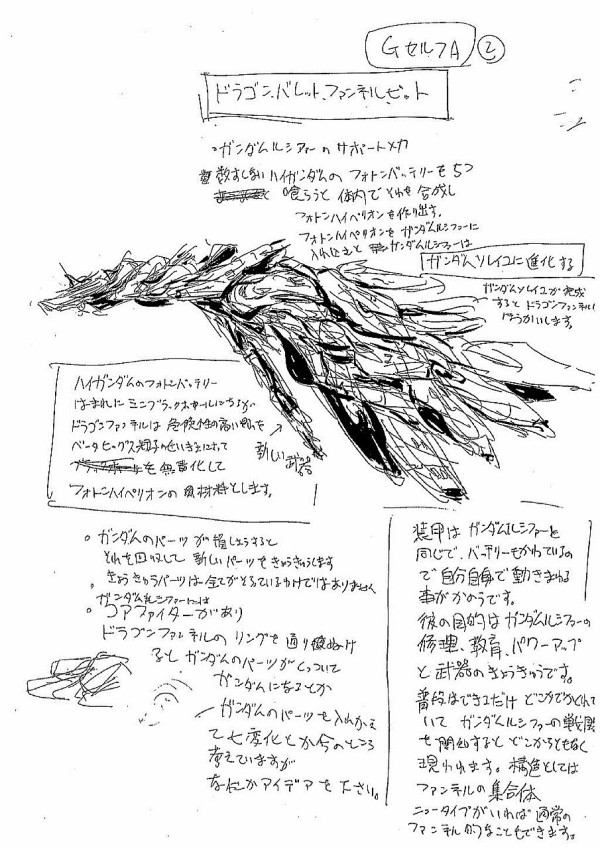 GセルフA ②
ドラゴン.バレット.ファンネル.ビット
。ガンダムルシファーのサポートメカ
数すしない ハイガンダムの フォトンバッテリーを5つ
喰らうと 体内でそれを合成し
フォトンハイペリオンを作り出す。
フォトンハイペリオンを ガンダムルシファーに
入れ込むと ガンダムルシファーは
ガンダムソレイユに進化する
ガンダムソレイユが完成
すると ドラゴンファンネルは
ほうかいします。
ハイガンダムのフォトンバッテリー
はまれに ミニブラックホールにちがが
ドラゴンファンネルは 危険性の高い
ベータヒッグス粒子の によって
を無害化して
フォトンハイペリオンの 原材料とします。
新しい武器
。ガンダムのパーツが 損しょうすると
それを回収して 新しいパーツをきょうきゅうします
きょうきゅうパーツは全てがそろているわけではありません
ガンダムルシファーには
。コアファイターがあり
ドラゴンファンネルの リングを通り抜け
ると ガンダムのパーツがくっついて
ガンダムになるとか
ガンダムのパーツを入れかえ
て七変化とか今のところ
考えていますが
なにかアイデアを下さい。
装甲は ガンダムルシファーと
同じで、バッテリーもかわているの
で自分自身で動きまわる
事がかのうです。
彼の目的はガンダムルシファーの
修理、教育、パワーアップ
と武器のきょうきゅうです。
普段はできるだけ どこかでかくれて
いて ガンダムルシファーの戦闘
を開始すると どこからともなく
現われます。構色としては
ファンネルの集合体
ニュータイプがいれば 通常の
ファンネル的なこともできます。